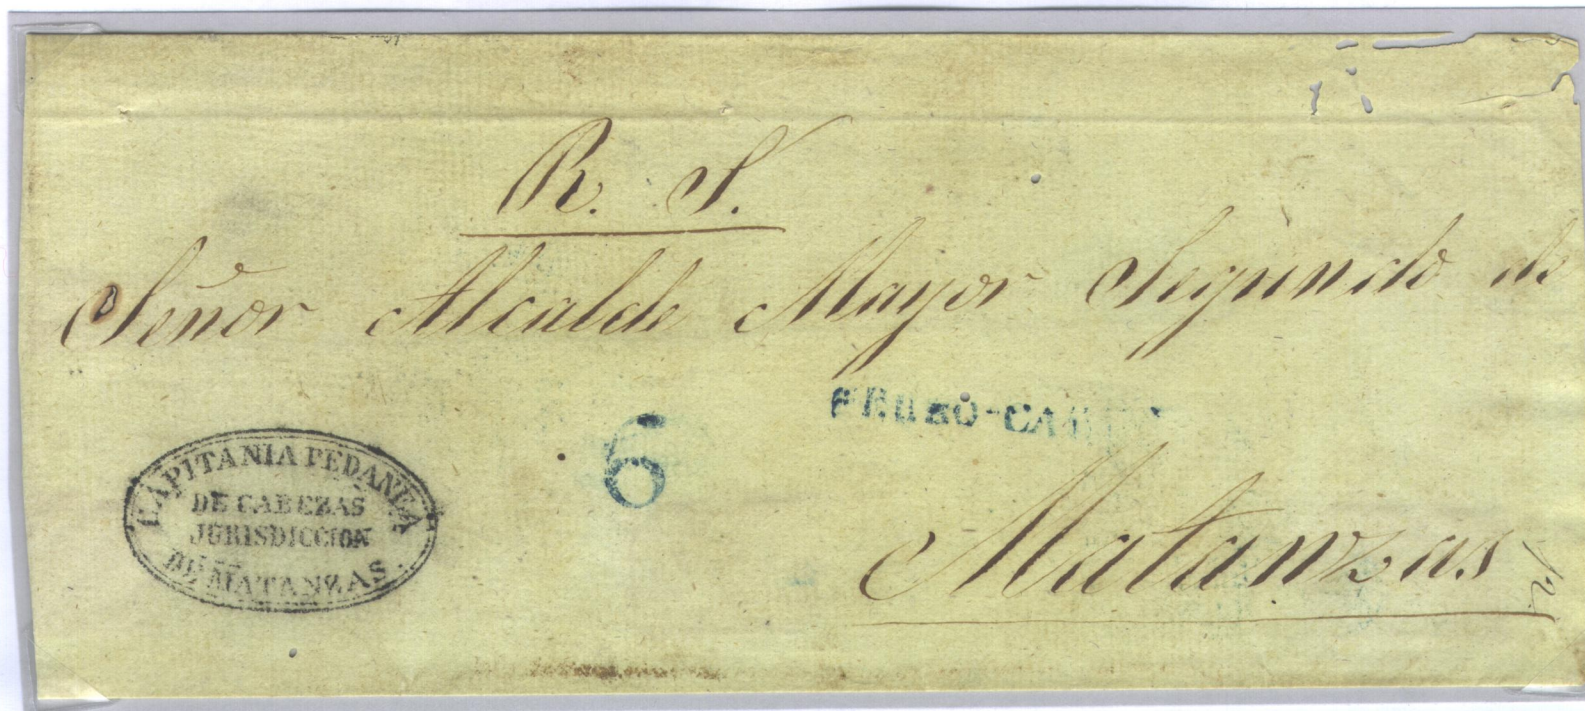 R. S.
Señor Alcalde Mayor Segundo de
6
CAPITANIA PEDANEA
DE CABEZAS
JURISDICCION
DE MATANZAS.
Matanzas